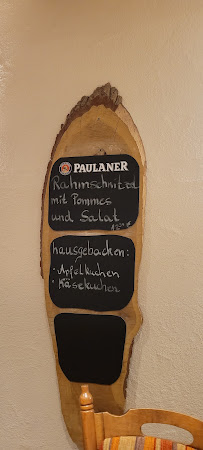 PAULANER
Rahmschnitzel
mit Pommes
und Salat
hausgebacken:
· Apfelkuchen
· Käsekuchen